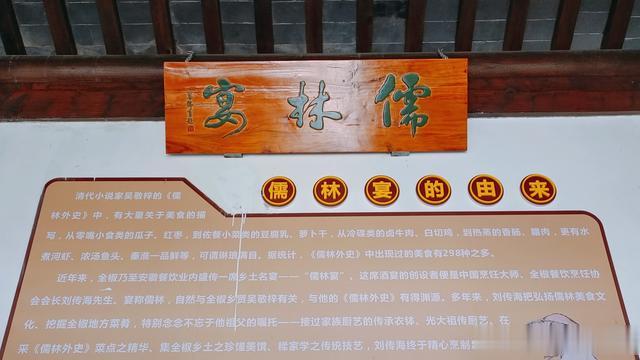 儒林宴
儒林宴的由来
清代小说家吴敬梓的《儒
林外史》中，有大量关于美食的描
写，从零嘴小食类的瓜子、红枣，到佐餐小菜类的豆腐乳、萝卜干，从冷碟类的卤牛肉、白切鸡，到热蒸的香肠、腊肉，更有水
煮河虾、浓汤鱼头、秦淮一品鲜等，可谓琳琅满目。据统计，《儒林外史》中出现过的美食有298种之多。
近年来，全椒乃至安徽餐饮业内盛传一席乡土名宴——“儒林宴”。这席酒宴的创设者便是中国烹饪大师、全椒餐饮烹饪协
会会长刘传海先生。宴称儒林，自然与全椒乡贤吴敬梓有关，与他的《儒林外史》有得渊源。多年来，刘传海把弘扬儒林美食文
化、挖掘全椒地方菜肴，特别念念不忘于他祖父的嘱托——接过家族厨艺的传承衣钵、光大祖传厨艺，在
《儒林外史》菜点之精华、集全椒乡土之珍馐美馔、秾家学之传统技艺，刘传海终于精心烹制